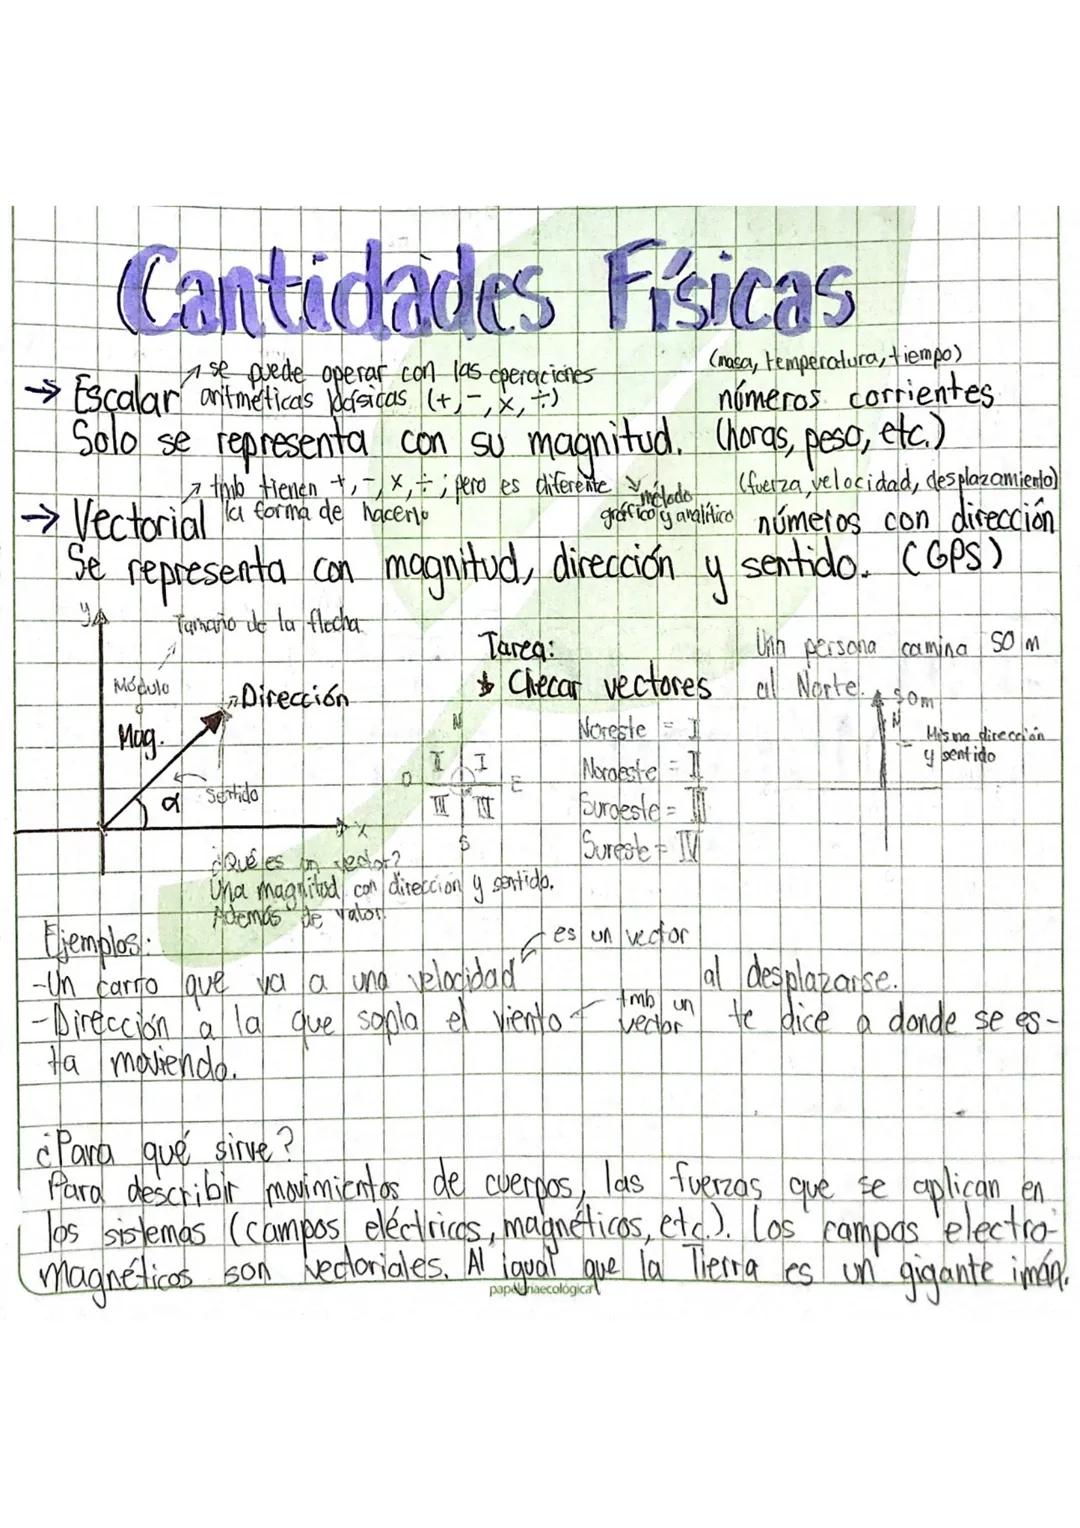 Cantidades Físicas
se puede operar con las operaciones
(masa, temperatura, tiempo)
→ Escalar aritméticas básicas (+, -, x, ÷)
números corrientes
Solo se representa con su magnitud. (horas, peso, etc.)
tmb tienen +, -, x, ÷; pero es diferente
la forma de hacerlo
método
gráfico y analítico
(fuerza, velocidad, desplazamiento)
→ Vectorial
números con dirección
Se representa con magnitud, dirección y sentido. (GPS)
y
Tamaño de la flecha
Módulo
Dirección
Mag.
Sentido
α
x
Tarea:
Checar vectores
N
II I
O E
III IV
S
Noreste = I
Noroeste = II
Suroeste = III
Sureste = IV
persona camina 50 m
al Norte.
50m
N
Misma dirección
y sentido
¿Qué es un vector?
Una magnitud con dirección y sentido.
Además de valor.
Ejemplos:
es un vector
-Un carro que va a una velocidad
al desplazarse.
-Dirección a la que sopla el viento
tmb un
vector
te dice a donde se es-
ta moviendo.
¿Para qué sirve?
Para describir movimientos de cuerpos, las fuerzas que se aplican en
los sistemas (campos eléctricos, magnéticos, etc.). Los campos electro-
magnéticos son vectoriales. Al igual que la Tierra es un gigante imán.